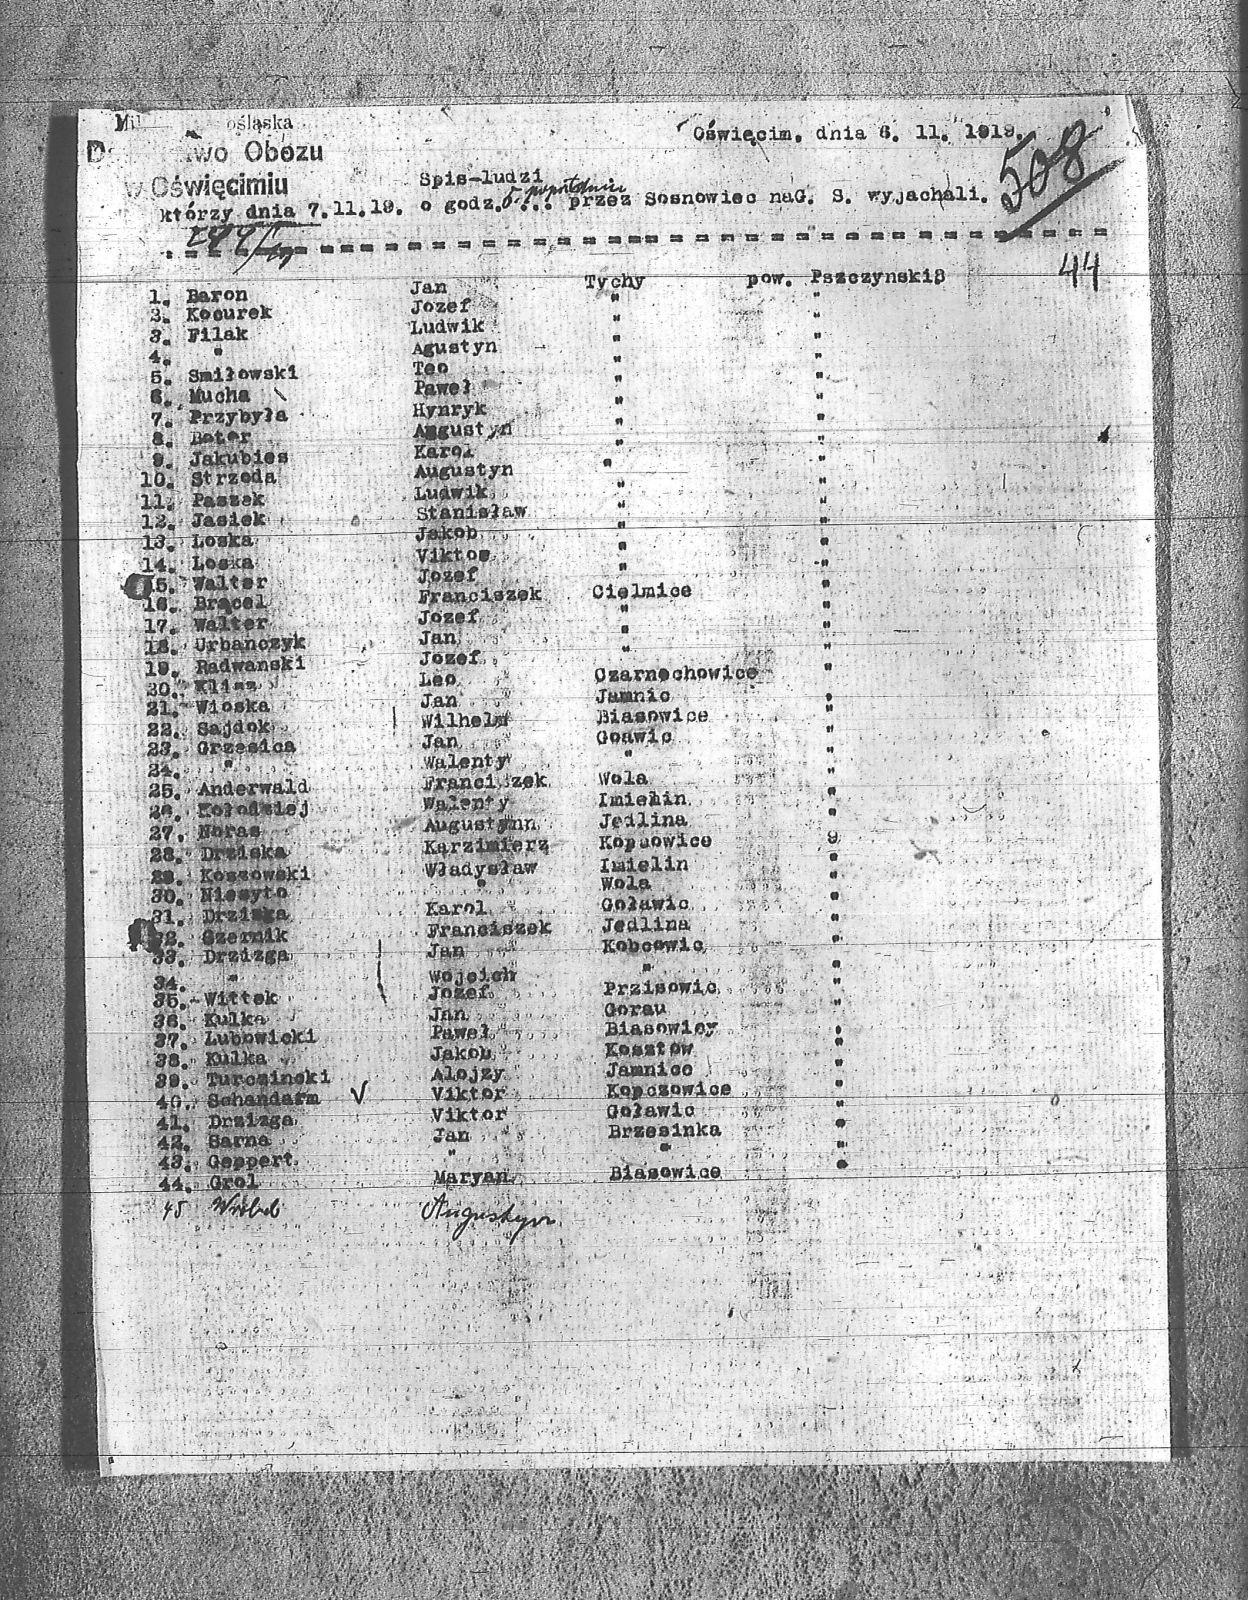 Mil ośląska
Oświęcim, dnia 6. 11. 1919.
wo Obozu
w Oświęcimiu
Spis-ludzi
którzy dnia 7.11.19. o godz. 5. popołudniu przez Sosnowiec naG. S. wyjachali.
508
44
1. Baron Jan Tychy pow. Pszczynskiß
2. Kocurek Jozef " "
3. Filak Ludwik " "
4. " Agustyn " "
5. Smiłowski Teo " "
6. Mucha Paweł " "
7. Przybyła Hynryk " "
8. Augustyn " "
9. Jakubies Karol " "
10. Strzoda Augustyn " "
11. Paszek Ludwik " "
12. Jasiek Stanisław " "
13. Loska Jakob " "
14. Loska Viktor " "
15. Walter Jozef " "
16. Brącel Franciszek Cielmice "
17. Walter Jozef " "
18. Urbanczyk Jan " "
19. Radwanski Jozef " "
20. Leo Czarnochowice "
21. Wioska Jan Jamnic "
22. Sajdok Wilhelm Biasowice "
23. Grzesica Jan Goawic "
24. " Walenty " "
25. Anderwald Franciszek Wola "
26. Kołodziej Walenty Imielin "
27. Noras Augustynn Jedlina "
28. Drziska Karzimierz Kopcowice "
29. Koszowski Władysław Imielin "
30. Niesyto " Wola "
31. Drziska Karol Goławic "
32. Czernik Franciszek Jedlina "
33. Drzizga Jan Kobcowic "
34. " Wojcich " "
35. Wittek Jozef Przisowic "
36. Kulka Jan Gorau "
37. Lubowicki Paweł Biasowicy "
38. Kulka Jakob Kosztow "
39. Turczinski Alojzy Jamnice "
40. Schandarm Viktor Kopczowice "
41. Drzizga Viktor Goławic "
42. Sarna Jan Brzesinka "
43. Geppert " " "
44. Grol Maryan Biasowice "
45 Augustyn